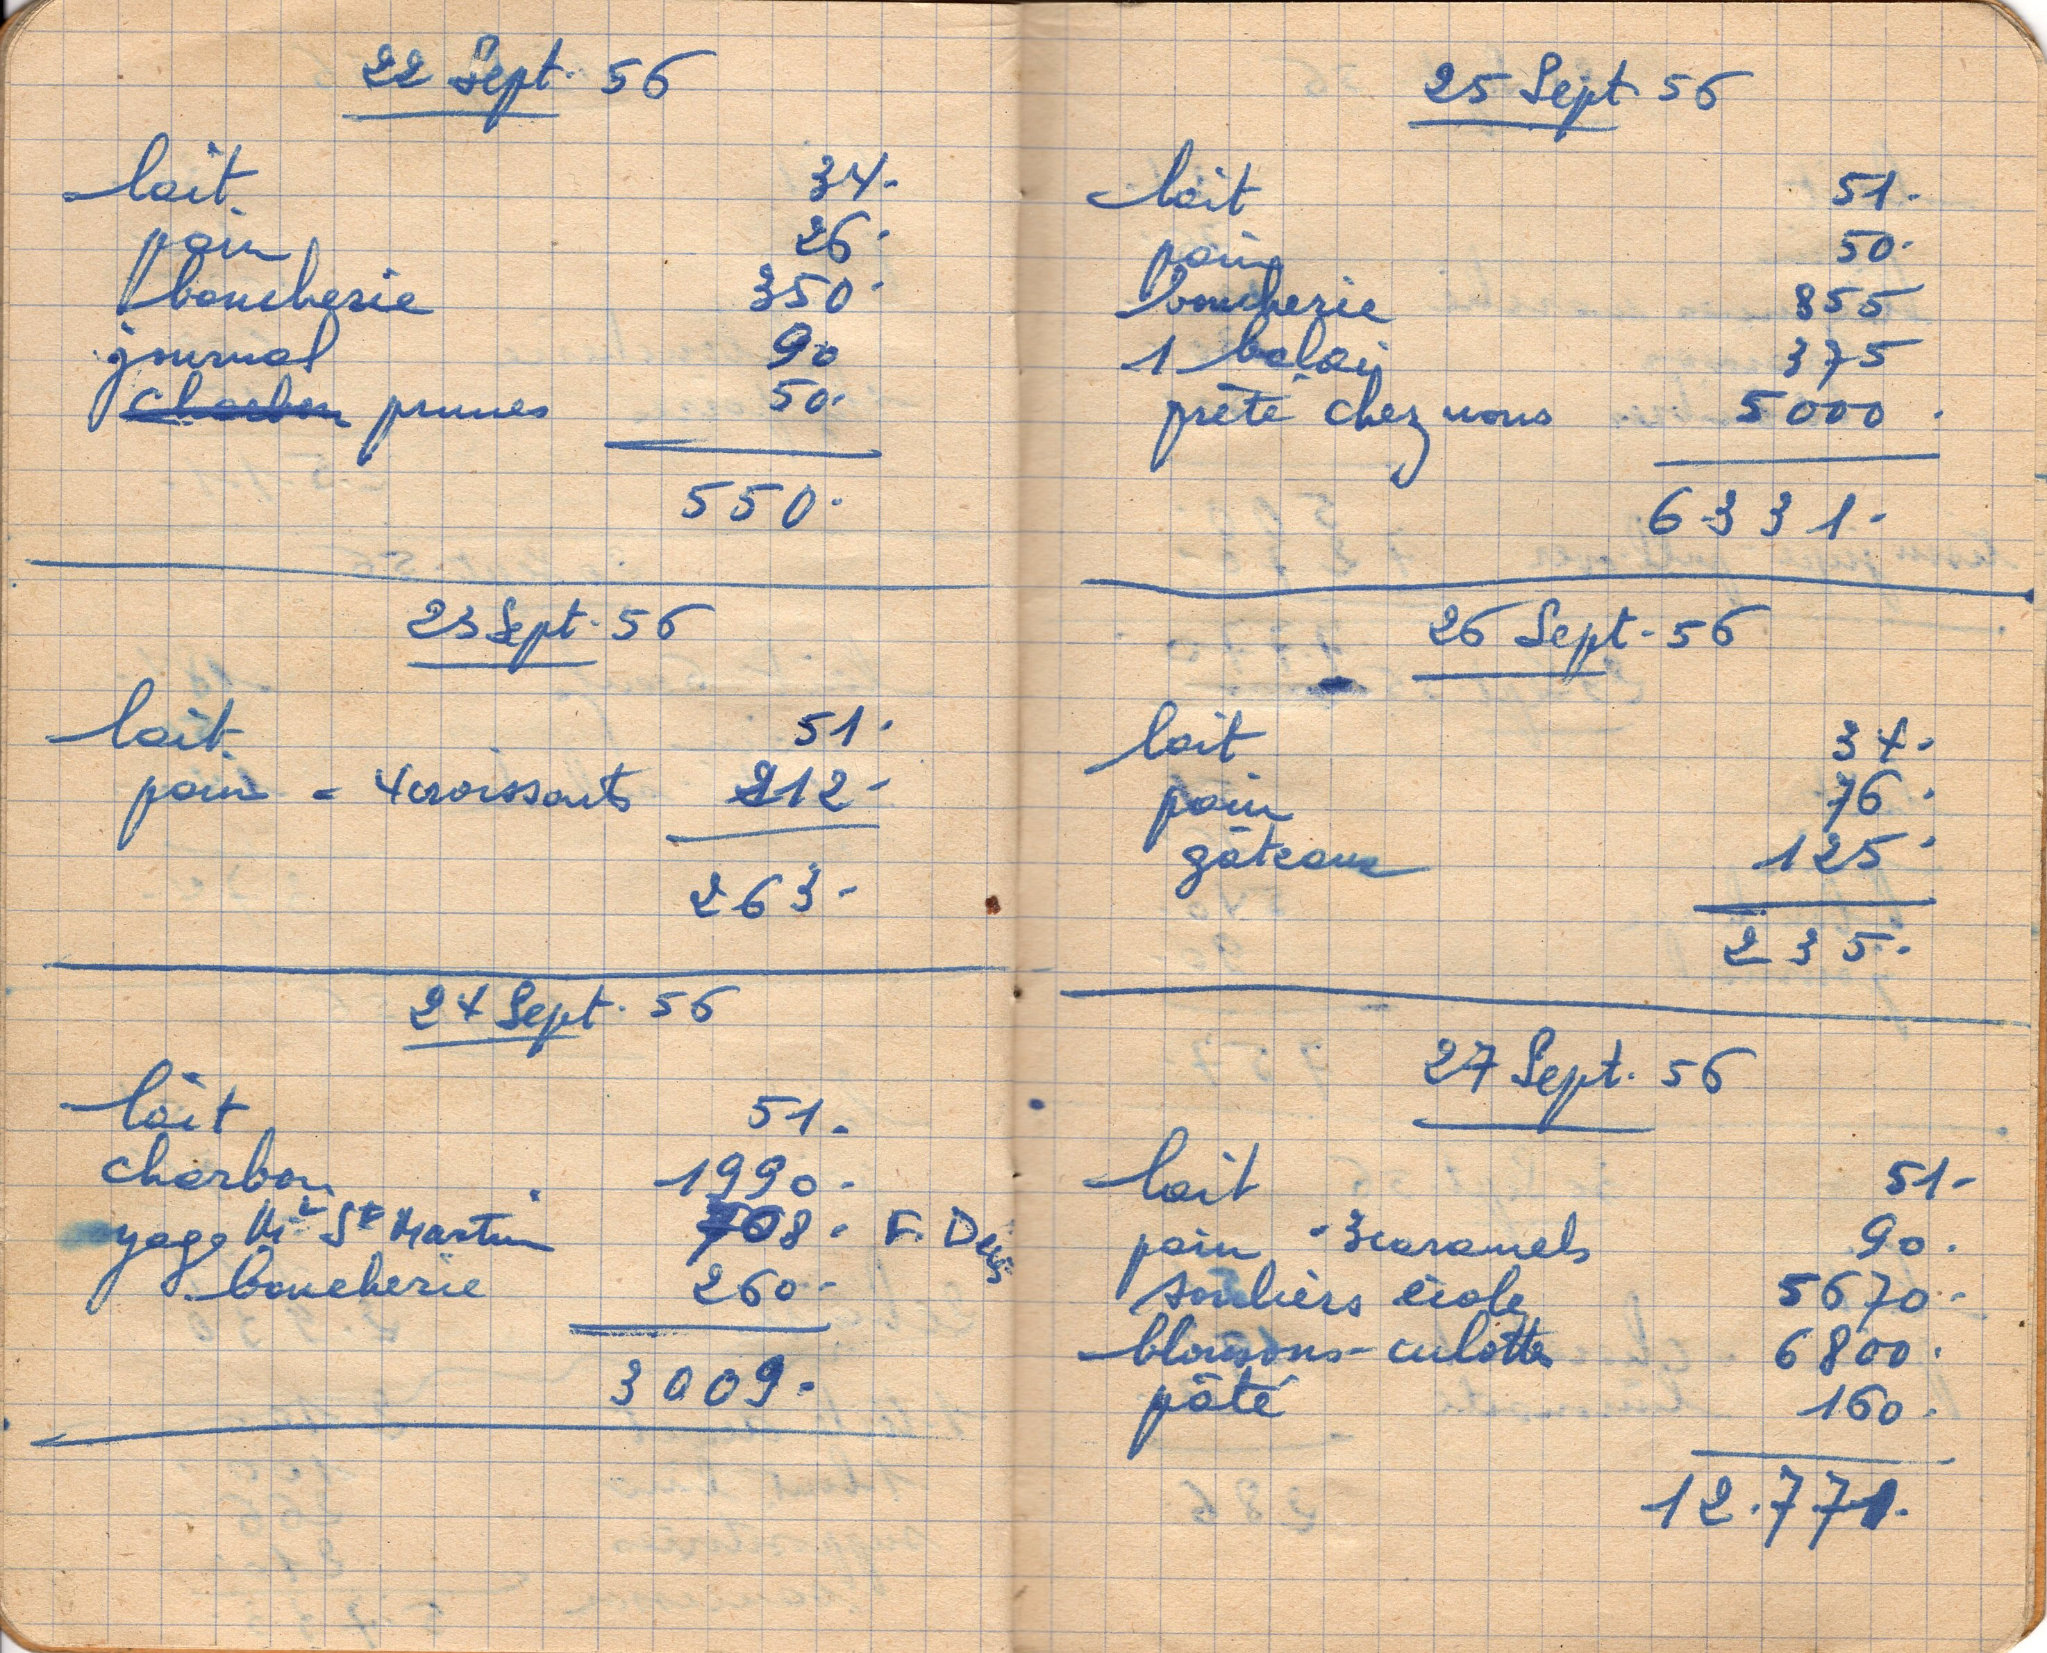 22 Sept. 56
lait 34.-
pain 26.-
boucherie 350.-
journal 90
charbon prunes 50.-
550.-
23 Sept. 56
lait 51.-
pain - 4 croissants 212.-
263.-
24 Sept. 56
lait 51.-
charbon 1990.-
yage Mr St Martin 708.- F. Deys
boucherie 260.-
3009.-
25 Sept. 56
lait 51.-
pain 50.-
boucherie 855
1 balai 375
prêté chez nous 5000.
6331.-
26 Sept. 56
lait 34.-
pain 76.-
gâteaux 125.-
235.-
27 Sept. 56
lait 51.-
pain - 3 caramels 90.
souliers école 5670.-
blousons - culottes 6800.
pâté 160.
12.771.